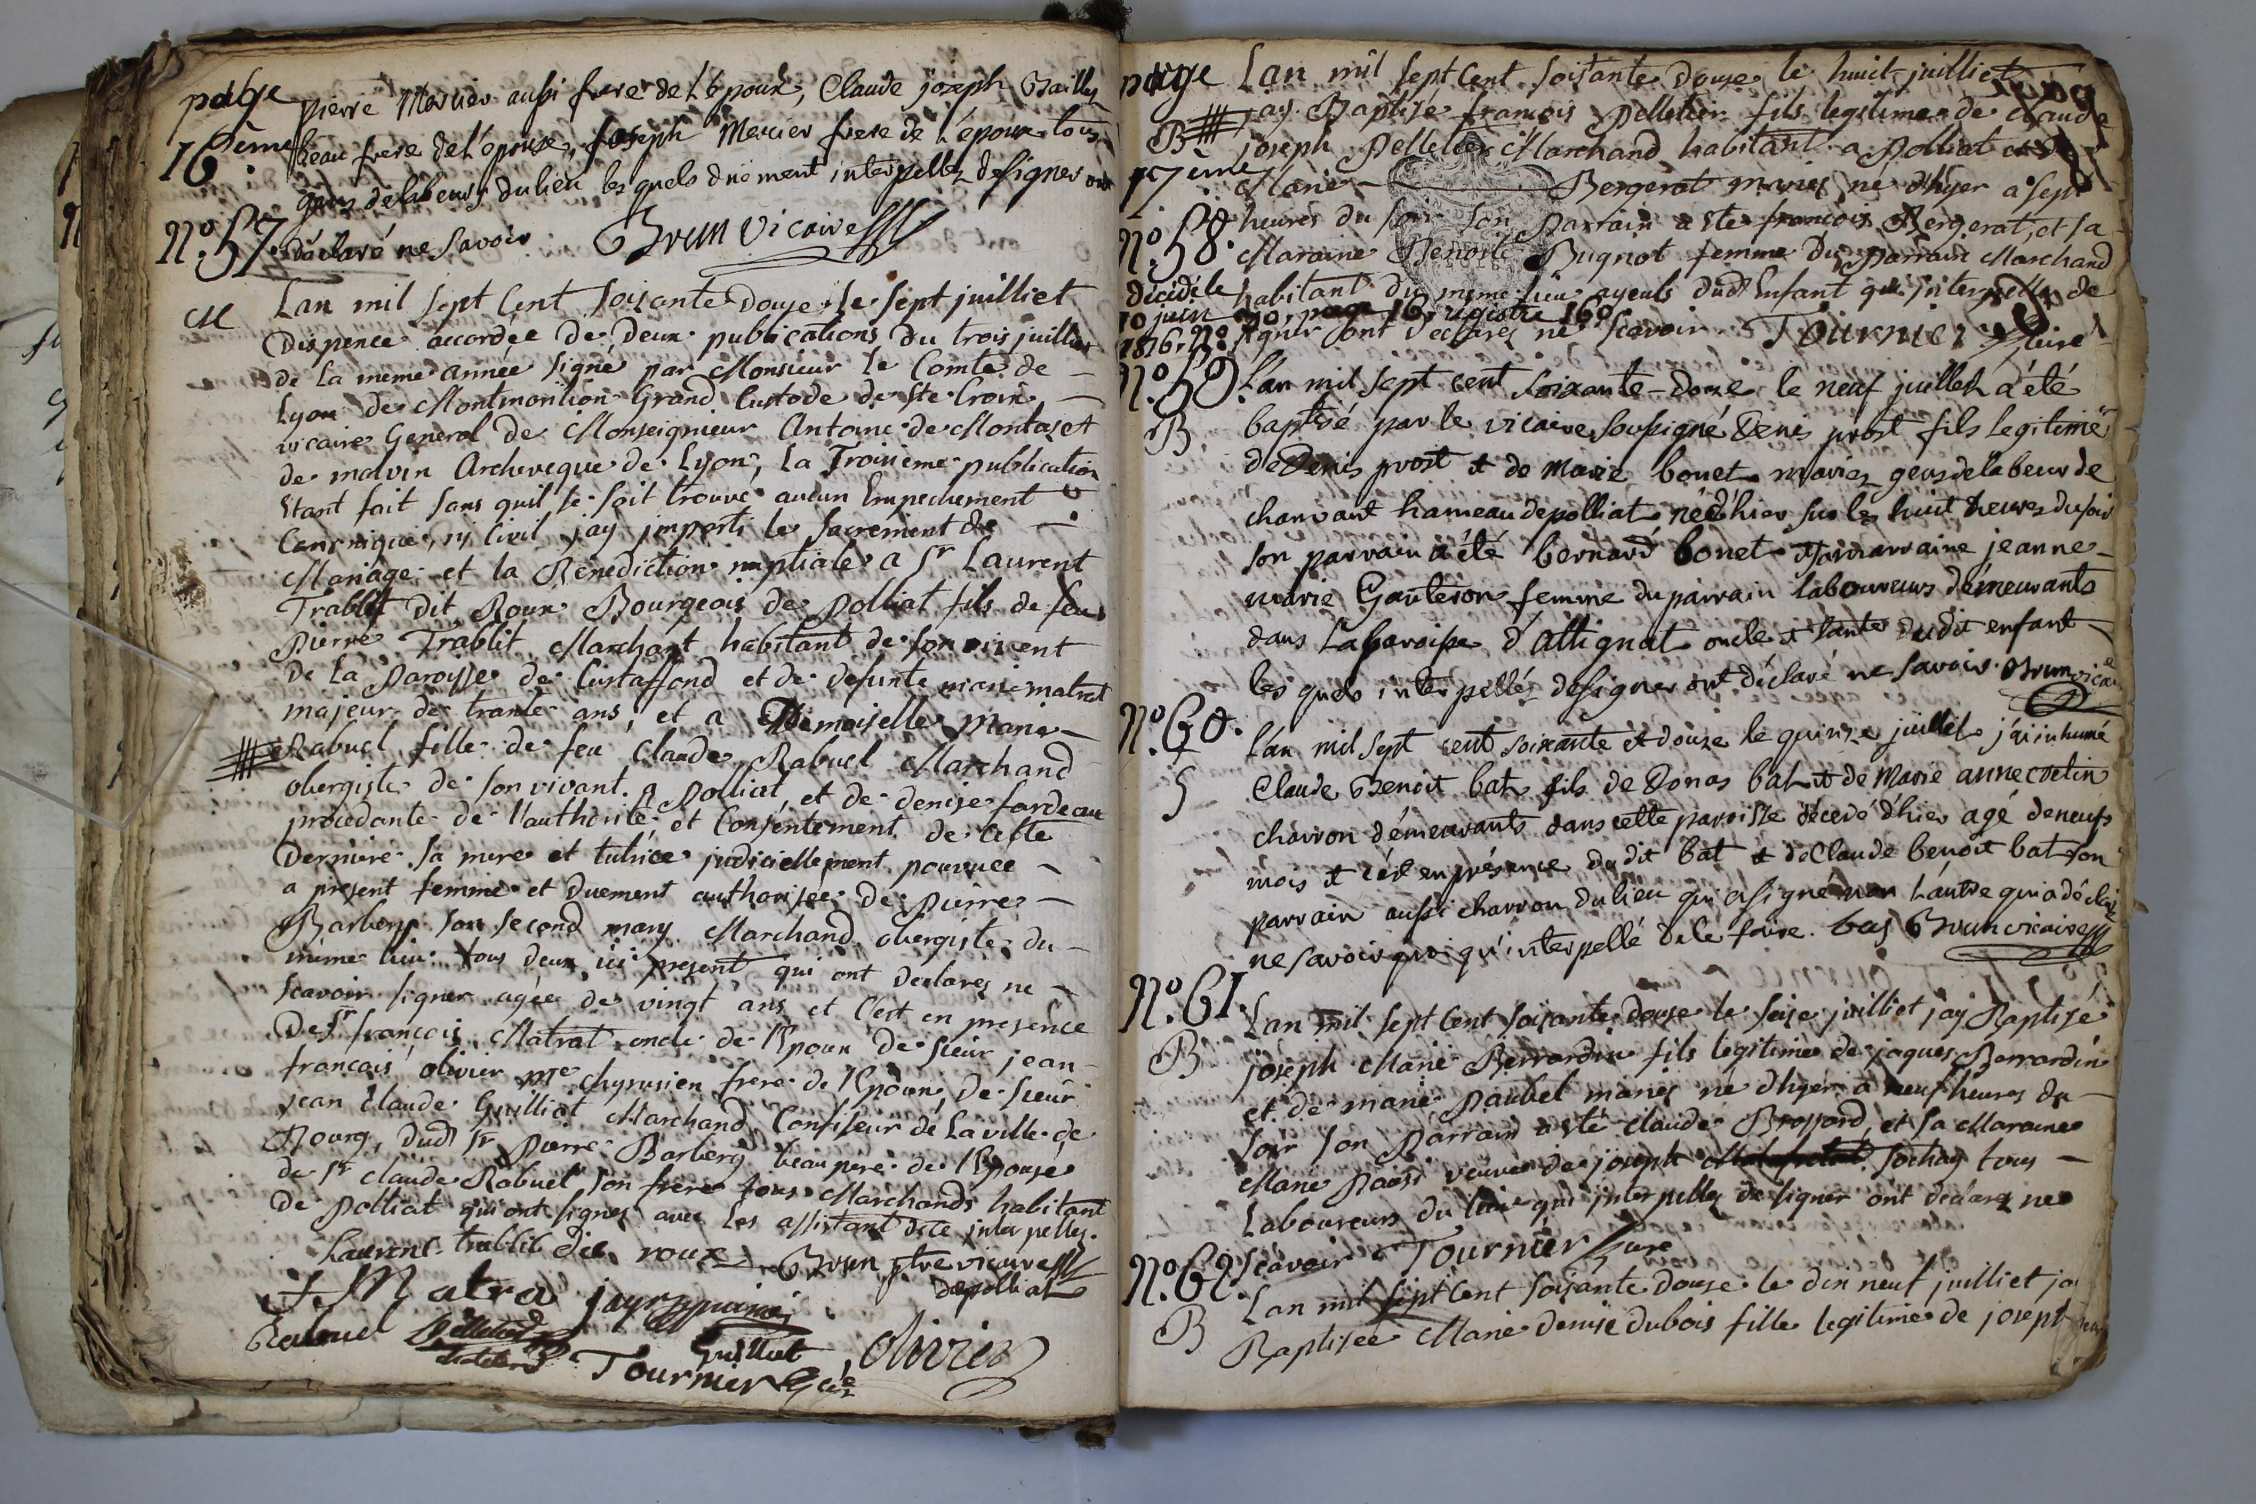 page
16ème
pierre Mercier aussi frere de l'époux, Claude joseph Bailly
beau frere de l'épouse, joseph Mercier frere de l'époux tous
gens de labeurs du lieu les quels duement interpellez de signer ont
No. 57. déclaré ne savoir Brun vicaire
M
Lan mil sept Cent soixante Douze le sept juilliet
Dispence accordée de Deux publications du trois juilliet
de la meme année signé par Monsieur le Comte de
Lyon de Montmorilion Grand Custode de Ste Croix
vicaire General de Monseignieur Antoine de Montazet
de malvin Archeveque de Lyon, la Troisieme publication
Etant fait sans quil se soit trouvé aucun Empechement
Canonique, ny Civil jay imparti le sacrement de
Mariage et la Benediction nuptiale a Sr Laurent
Trablit Dit Roux Bourgeois de Polliat fils de feu
Pierre Trablit Marchant habitant de son vivent
de La Paroisse de Curtaffond et de defunte marie matrat
majeur de trante ans, et a Demoiselle Marie
Rabuel fille de feu Claude Rabuel Marchand
obergiste de son vivant a Polliat, et de denise fardeau
procedante de l'authorité et Consentement de Cette
Derniere sa mere et tutrice judiciellement pourvuee
a present femme et Duement authorisée de Pierre
Barberg son second mary Marchand obergiste du
même lieu tous deux ici present qui ont declarez ne
scavoir signer agée de vingt ans et C'est en presence
De Sr françois Matrat oncle de l'Epoux de sieur jean
francois olivier me chyrusien frere de l'Epoux, de sieur
jean Claude Guilliot Marchand Confiseur de la ville de
Bourg, dud Sr Pierre Barberg beau pere de l'Epouse
de Sr Claude Rabuel son frere tous Marchands habitant
de Polliat qui ont signez avec les assistant de ce interpellez.
Laurent trablit dit roux Brun ptre vicaire
de polliat
f. Matra
Rabuel Pelletier Guilliot olivier
Tournier Curé
page
17ème
Lan mil sept Cent soixante Douze le huit juilliet
B jay Baptisé francois Pelletier fils legitime de Claude
joseph Pelletier Marchand habitant a Polliat et de
Marie Bergerat mariés né d'hyer a sept
No. 58. heures du soir son Parrain a ete francois Bergerat, et sa
Maraine Benoite Bugnot femme du Parrain Marchand
décédé le habitant du meme lieu ayeuls dud Enfant qui interpellés de
10 juin page 16, registre 160
1816. No. signer ont declarez ne scavoir Tournier Cure
No. 59. L'an mil sept cent soixante-douze le neuf juillet a été
B baptisé par le vicaire soussigné Denis prost fils legitime
de Denis prost et de Marie bonet mariez gens de labeur de
chanvant hameau de polliat né d'hier sur les huit heures du soir
son parrain a été bernard bonet et sa marraine jeanne
marie Gauteron femme du parrain laboureurs demeurants
dans la paroisse d'attignat oncle et tante du dit enfant
les quels interpellés de signer ont déclaré ne savoir. Brun vicaire
No. 60. L'an mil sept cent soixante et douze le quinze juillet j'ai inhumé
S Claude Benoit bat fils de Donas bat et de Marie anne cretin
charron démeurants dans cette paroisse décedé d'hier agé de neufs
mois et c'est en présence du dit bat et de Claude benoit bat son
parrain aussi charron du lieu qui a signé non l'autre qui a déclaré
ne savoir quoi qu'interpellé de le faire. bas Brun vicaire
No. 61. Lan mil sept Cent soixante douze le seize juilliet jay Baptisé
B joseph Marie Berrardin fils legitime de jaques Berrardin
et de marie Paubel mariez ne dhyer a neuf heures du
soir son Parrain a eté Claude Brossard, et sa Maraine
Marie veuve de joseph Sochay tous
Laboureurs du lieu qui interpellez de signer ont declarez ne
scavoir Tournier Cure
No. 62. Lan mil sept Cent soixante Douze le dix neuf juilliet jay
B Baptisée Marie denise dubois fille legitime de joseph